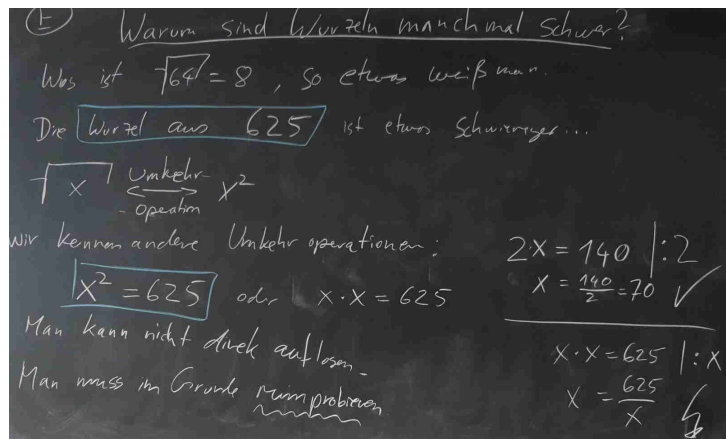 E
Warum sind Wurzeln manchmal schwer?
Was ist √64 = 8, so etwas weiß man.
Die Wurzel aus 625 ist etwas schwieriger...
√x Umkehr-operation x²
Wir kennen andere Umkehroperationen:
x² = 625 oder x · x = 625
Man kann nicht direk auflösen.
Man muss im Grunde rumprobieren
2·x = 140 |:2
x = 140/2 = 70 ✓
x · x = 625 |:x
x = 625/x